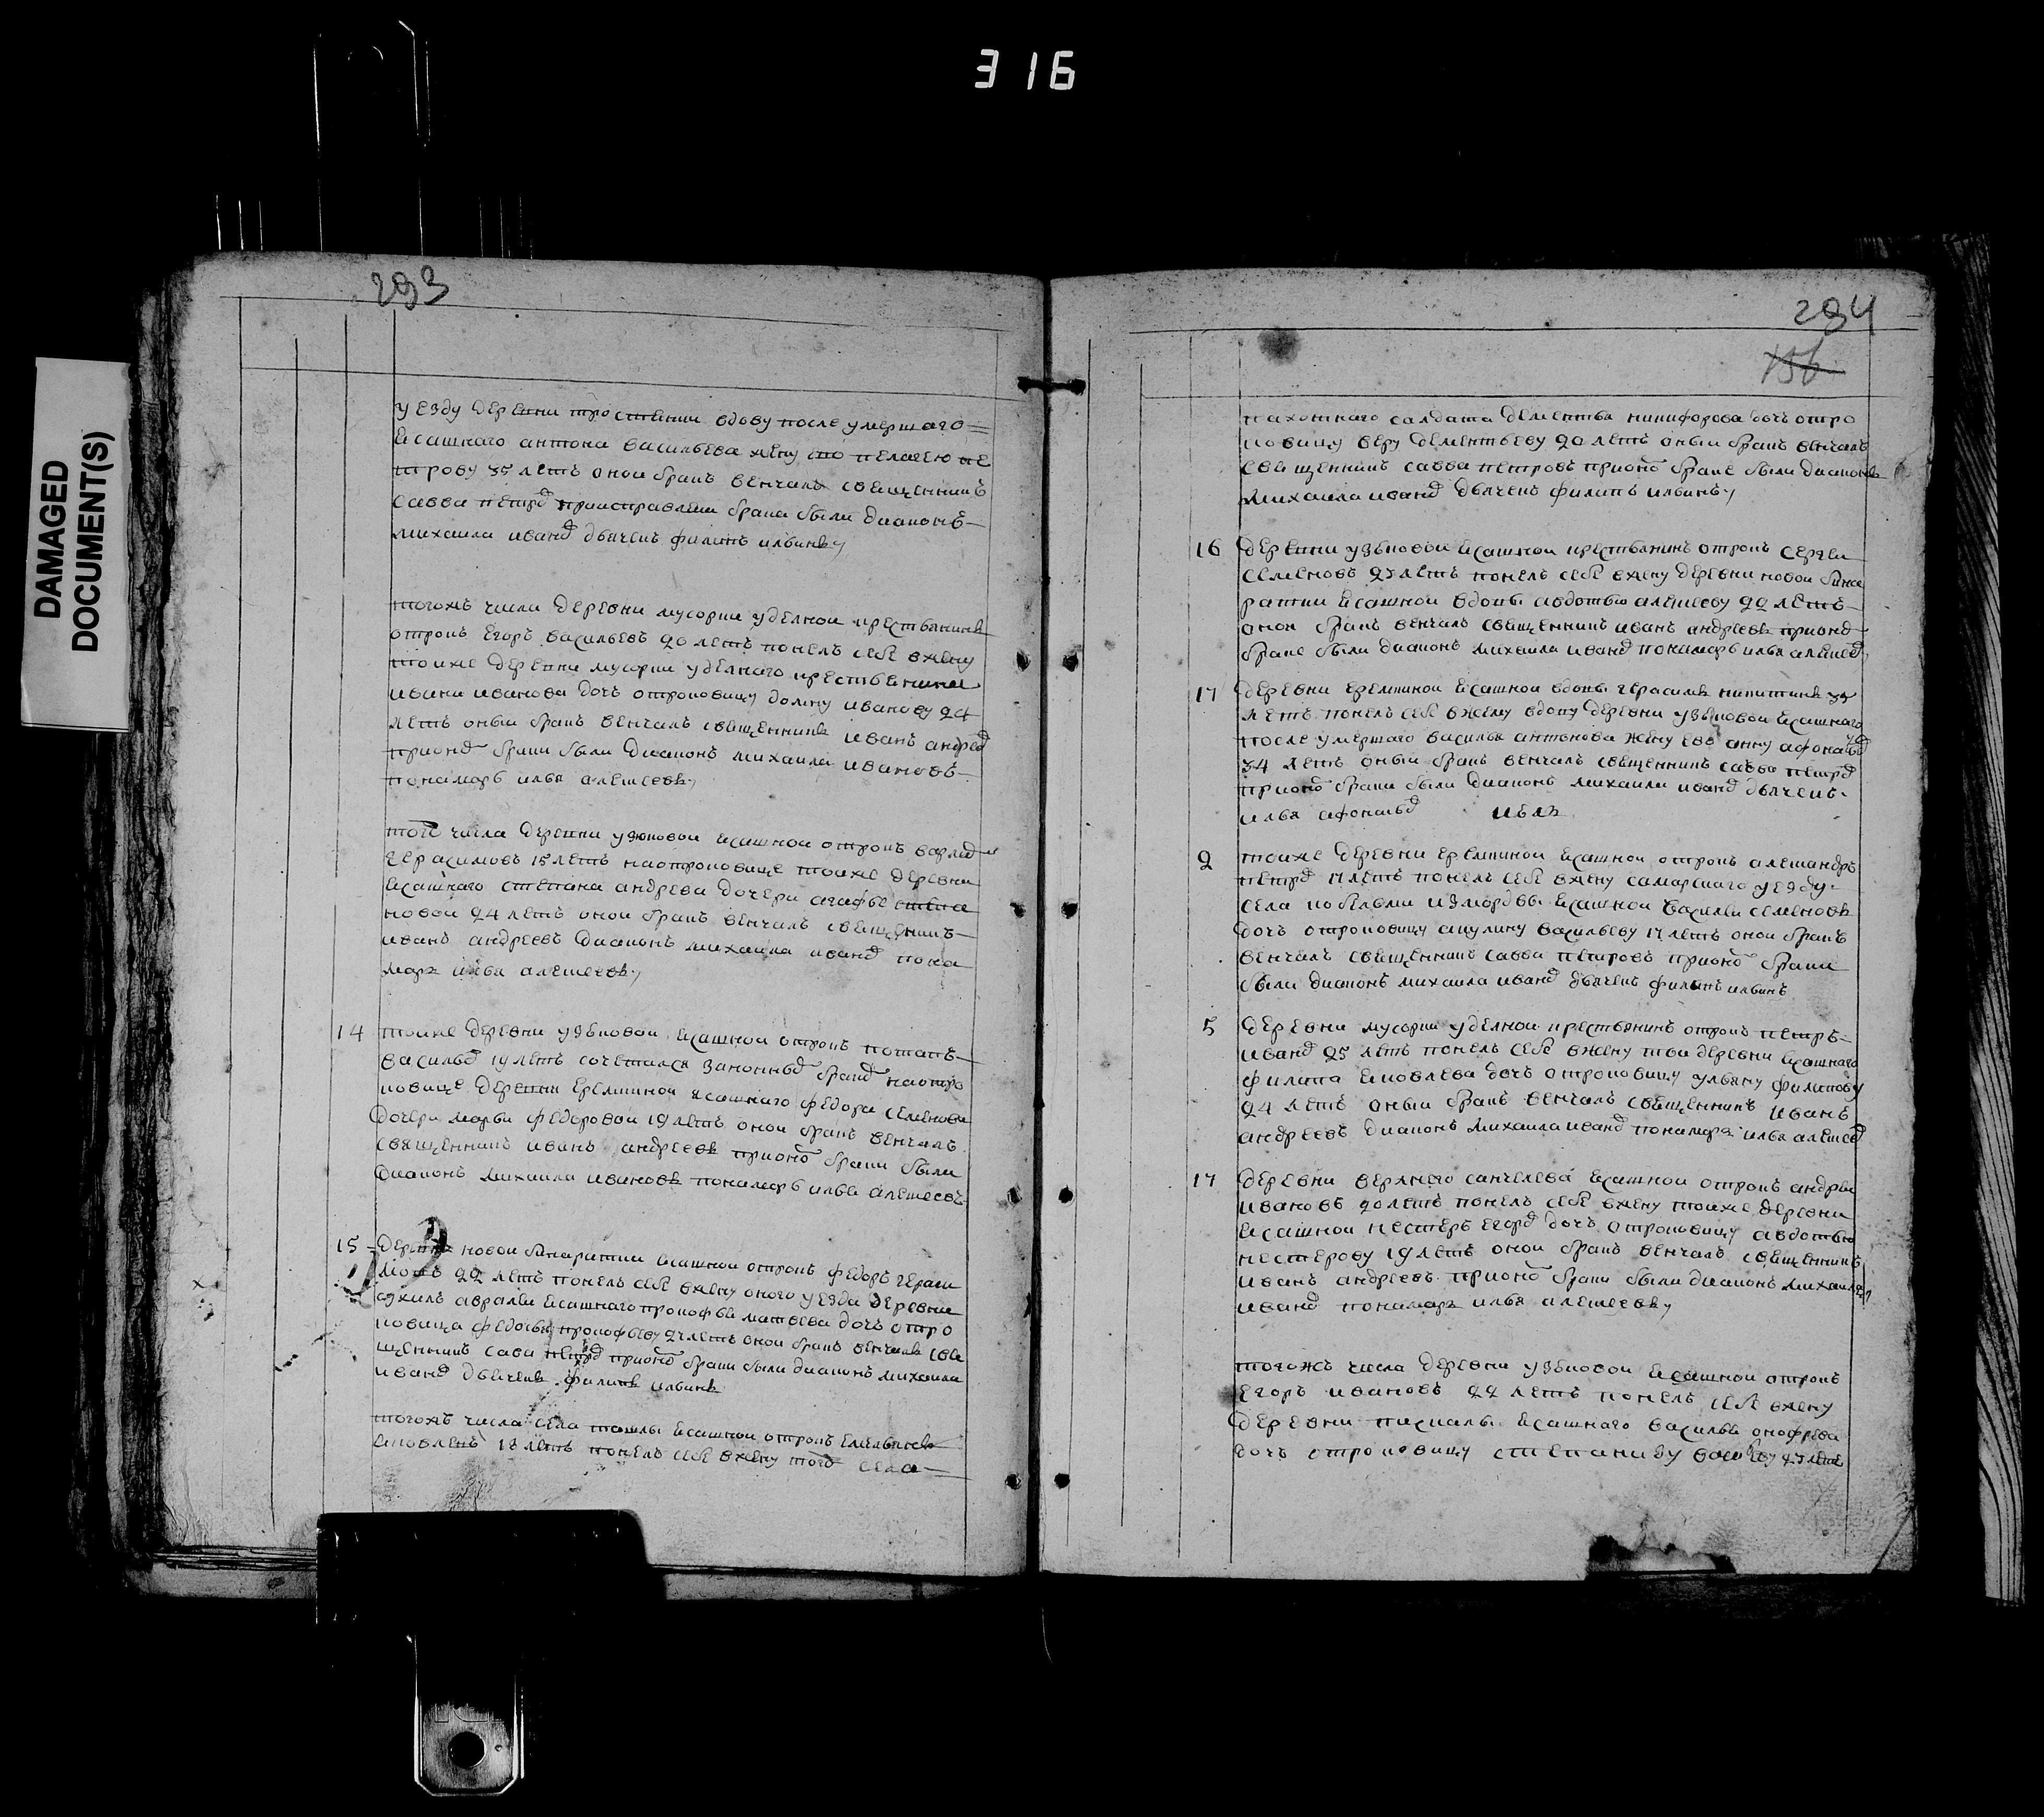 316
DAMAGED
DOCUMENT(S)
293
уезду деревни тростенки вдову после умершаго
ясашнаго антона васильева жену пелагею пе
трову 35 летъ оной бракъ венчалъ свещенникъ
савва петров браке были диаконъ
михаила иванов дьячекъ филипъ ильинъ
тогожъ числа деревни мусорки уделной крестьянинъ
отрокъ егоръ васильевъ 20 летъ понелъ себе вжену
тойже деревни мусорки уделнаго крестьенина
ивана иванова дочь отроковицу иванову 24
летъ оный бракъ венчалъ свещенникъ иванъ андреев
прионо браки были диаконъ михаила ивановъ
понамарь илья алексеевъ
того числа деревни узюковой ясашной отрокъ
герасимовъ 15 летъ наотроковице тойже деревни
ясашнаго степана андреева дочери агафье степа
новой 24 летъ оной бракъ венчалъ свещенникъ
иванъ андреевъ диаконъ михаила иванов пона
марь илья алексеевъ
14 тойже деревни узюковой ясашной отрокъ потапъ
васильев 19 летъ сочетался законным браком наотро
ковице деревни еремкиной ясашнаго федора семенова
дочери марьи федоровой 19 летъ оной бракъ венчалъ
свещенникъ иванъ андреевъ прионо браки были
диаконъ михаила ивановъ понамарь илья алексеевъ
15 деревни новой бинаратки ясашной отрокъ федоръ гераси
мовъ 22 летъ понелъ себе вжену оного уезда деревни
авралей ясашнаго прокофья матвева дочь отро
ковица федосья прокофьеву 21 летъ оной бракъ венчалъ све
щенникъ сава петров прионо браки были диаконъ михаила
иванов дьячекъ филипъ ильинъ
тогожъ числа села ташлы ясашной отрокъ емельянъ
яковлевъ 18 летъ понелъ себе вжену того села
294
156
пахотнаго салдата дементья никифорова дочь отро
ковицу веру дементьеву 20 летъ оный бракъ венчалъ
свещенникъ савва петровъ прионо браке были диаконъ
михаила иванов дьячекъ филипъ ильинъ
16 деревни узюковой ясашной крестьянинъ отрокъ сергей
семеновъ 23 летъ понелъ себе вжену деревни новой бина
ратки ясашной вдовы авдотью алексеву 22 летъ
оной бракъ венчалъ свещенникъ иванъ андреевъ прионо
браке были диаконъ михаила иванов понамарь илья алексеев
17 деревни еремкиной ясашной вдовы герасимъ никитинъ 35
летъ понелъ себе вжену вдову деревни узюковой ясашнаго
после умершаго василья антонова жену ево анну афонасьев
34 летъ оный бракъ венчалъ свещенникъ савва петров
прионо браки были диаконъ михаила иванов дьячекъ
илья афонасьев июля
2 тойже деревни еремкиной ясашной отрокъ александръ
петров 17 летъ понелъ себе вжену самарскаго уезду
села кобельмы измордвы ясашной василей семеновъ
дочь отроковицу акулину васильеву 17 летъ оной бракъ
венчалъ свещенникъ савва петровъ прионо браки
были диаконъ михаила иванов дьячекъ филипъ ильинъ
5 деревни мусорки уделной крестьянинъ отрокъ петръ
иванов 25 летъ понелъ себе вжену тои деревни ясашнаго
филипа яковлева дочь отроковицу ульяну филипову
24 летъ оный бракъ венчалъ свещенникъ иванъ
андреевъ диаконъ михаила иванов понамарь илья алексеев
17 деревни верхнего санчелева ясашной отрокъ андрей
ивановъ 20 летъ понелъ себе вжену тойже деревни
ясашной нестеръ егоров дочь отроковицу авдотью
нестерову 19 летъ оной бракъ венчалъ свещенникъ
иванъ андреевъ прионо браки были диаконъ михаила
иванов понамарь илья алексеевъ
тогожъ числа деревни узюковой ясашной отрокъ
егоръ ивановъ 22 летъ понелъ себе вжену
деревни ясашнаго василья онофрева
дочь отроковицу степаниду васильеву 23 летъ